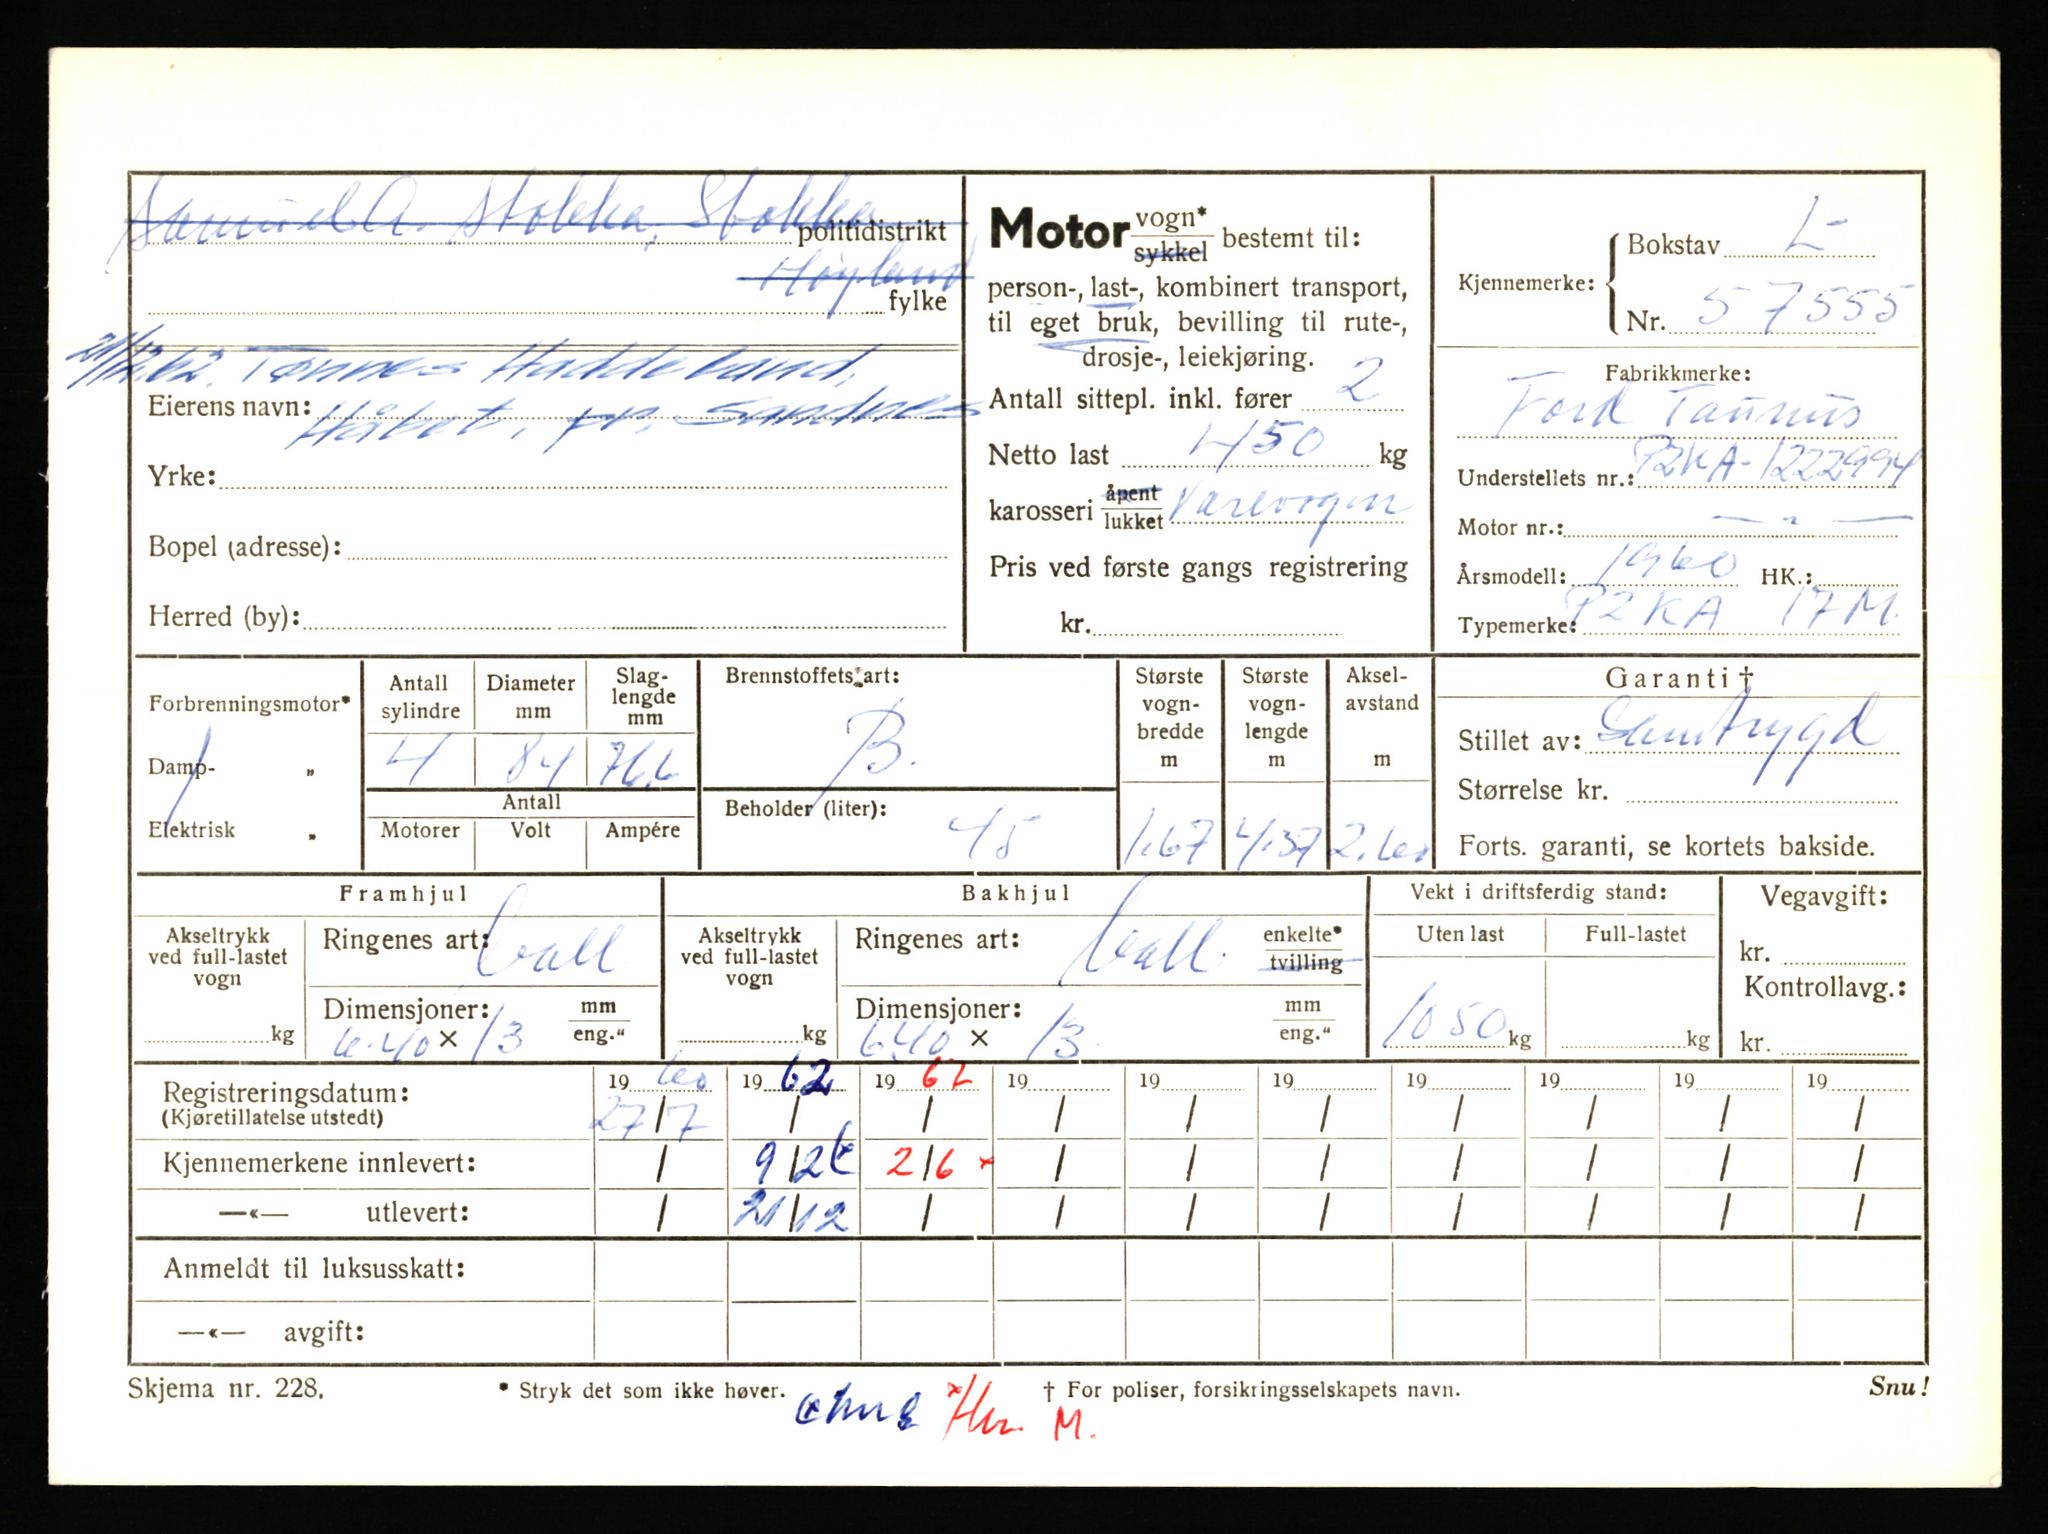 Samuel A. Stokka, Stokka
politidistrikt
Høyland
fylke
21/12.62. Tønnes Haddeland,
Eierens navn: Håbet, pr. Sandnes
Yrke:
Bopel (adresse):
Herred (by):
Motor vogn* sykkel bestemt til:
person-, last-, kombinert transport,
til eget bruk, bevilling til rute-,
drosje-, leiekjøring.
Antall sittepl. inkl. fører 2
Netto last 450 kg
karosseri åpent lukket Varevogn
Pris ved første gangs registrering
kr.
Kjennemerke: Bokstav L-
Nr. 57555
Fabrikkmerke:
Ford Taunus
Understellets nr.: P2KA-1222994
Motor nr.: — " —
Årsmodell: 1960 HK.:
Typemerke: P2KA 17M.
Forbrenningsmotor*
Damp- "
Elektrisk "
Antall sylindre
4
Diameter mm
84
Slag-lengde mm
76,6
Antall
Motorer Volt Ampére
Brennstoffets art:
B.
Beholder (liter):
45
Største vogn-bredde m
1.67
Største vogn-lengde m
4.37
Aksel-avstand m
2.60
Garanti †
Stillet av: Samtrygd
Størrelse kr.
Forts. garanti, se kortets bakside.
Framhjul
Akseltrykk ved full-lastet vogn
kg
Ringenes art:
Dimensjoner: mm eng."
6.40 × 13
Bakhjul
Akseltrykk ved full-lastet vogn
kg
Ringenes art: enkelte* tvilling
Dimensjoner: mm eng."
6.40 × 13
Vekt i driftsferdig stand:
Uten last Full-lastet
1050 kg kg
Vegavgift:
kr.
Kontrollavg.:
kr.
19 60 19 62 19 62 19 19 19 19 19 19 19
Registreringsdatum:
(Kjøretillatelse utstedt) 27/7 / / / / / / / / /
Kjennemerkene innlevert: / 9/2 × 2/6 × / / / / / / /
—«— utlevert: / 21/12 / / / / / / / /
Anmeldt til luksusskatt:
—«— avgift:
Skjema nr. 228.
* Stryk det som ikke høver.
† For poliser, forsikringsselskapets navn.
Snu!
M.